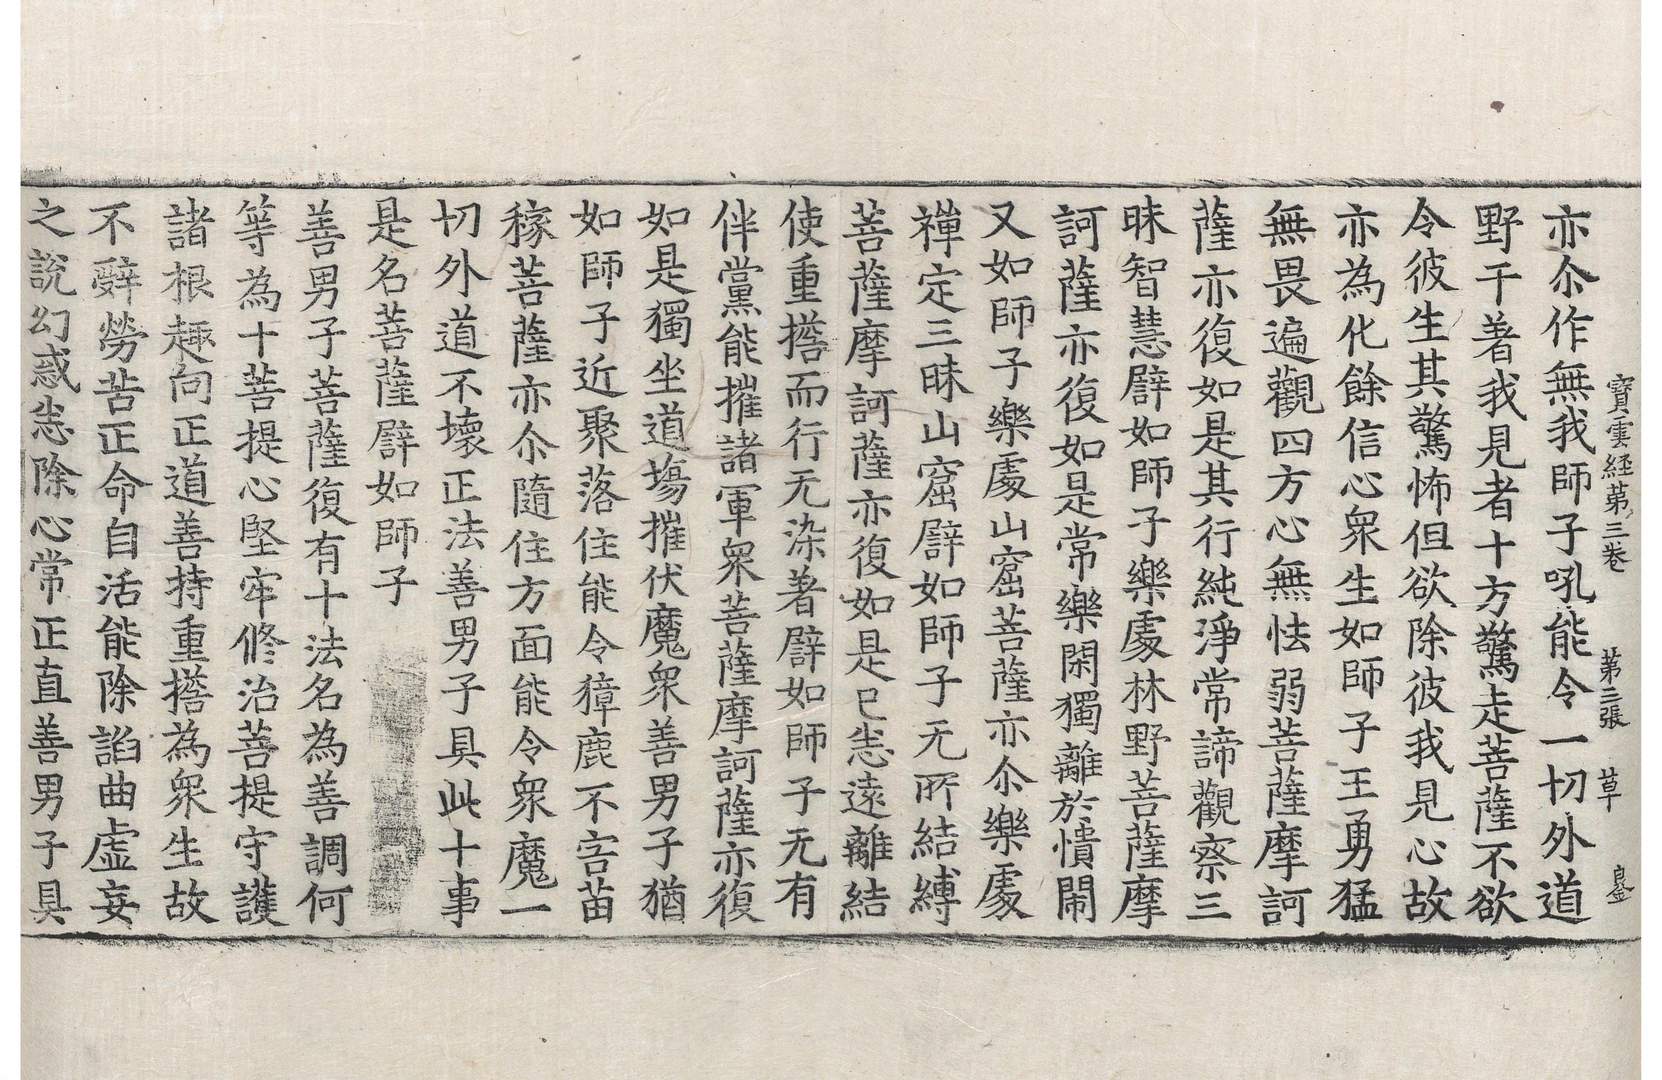 寶雲経苐三卷　苐三張　草　鋆
亦尒作無我師子吼能令一切外道
野干著我見者十方驚走菩薩不欲
令彼生其驚怖但欲除彼我見心故
亦為化餘信心衆生如師子王勇猛
無畏遍觀四方心無怯弱菩薩摩訶
薩亦復如是其行純淨常諦觀察三
昧智慧譬如師子樂處林野菩薩摩
訶薩亦復如是常樂閑獨離於憒閙
又如師子樂處山窟菩薩亦尒樂處
禪定三昧山窟譬如師子无所結縛
菩薩摩訶薩亦復如是已悉遠離結
使重擔而行无染著譬如師子无有
伴黨能摧諸軍衆菩薩摩訶薩亦復
如是獨坐道場摧伏魔衆善男子猶
如師子近聚落住能令獐鹿不害苗
稼菩薩亦尒隨住方面能令衆魔一
切外道不壞正法善男子具此十事
是名菩薩譬如師子
善男子菩薩復有十法名為善調何
等為十菩提心堅牢修治菩提守護
諸根趣向正道善持重擔為衆生故
不辭勞苦正命自活能除諂曲虛妄
之說幻惑悉除心常正直善男子具